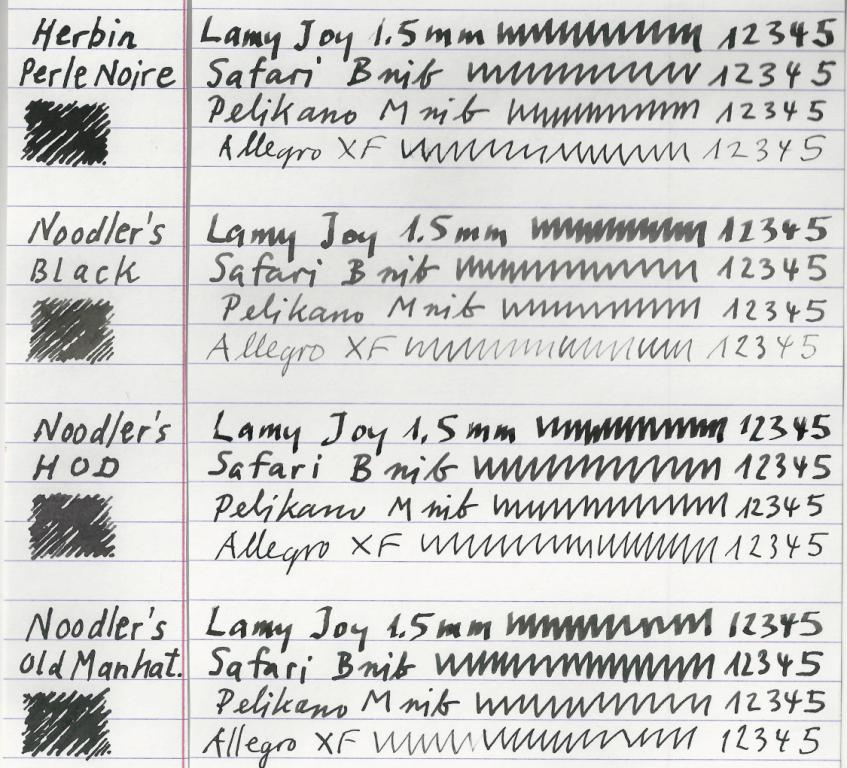 Herbin Lamy Joy 1.5mm 12345
Perle Noire Safari B nib 12345
Pelikano M nib 12345
Allegro XF 12345
Noodler's Lamy Joy 1.5mm 12345
Black Safari B nib 12345
Pelikano M nib 12345
Allegro XF 12345
Noodler's Lamy Joy 1.5mm 12345
HOD Safari B nib 12345
Pelikano M nib 12345
Allegro XF 12345
Noodler's Lamy Joy 1.5mm 12345
Old Manhat. Safari B nib 12345
Pelikano M nib 12345
Allegro XF 12345